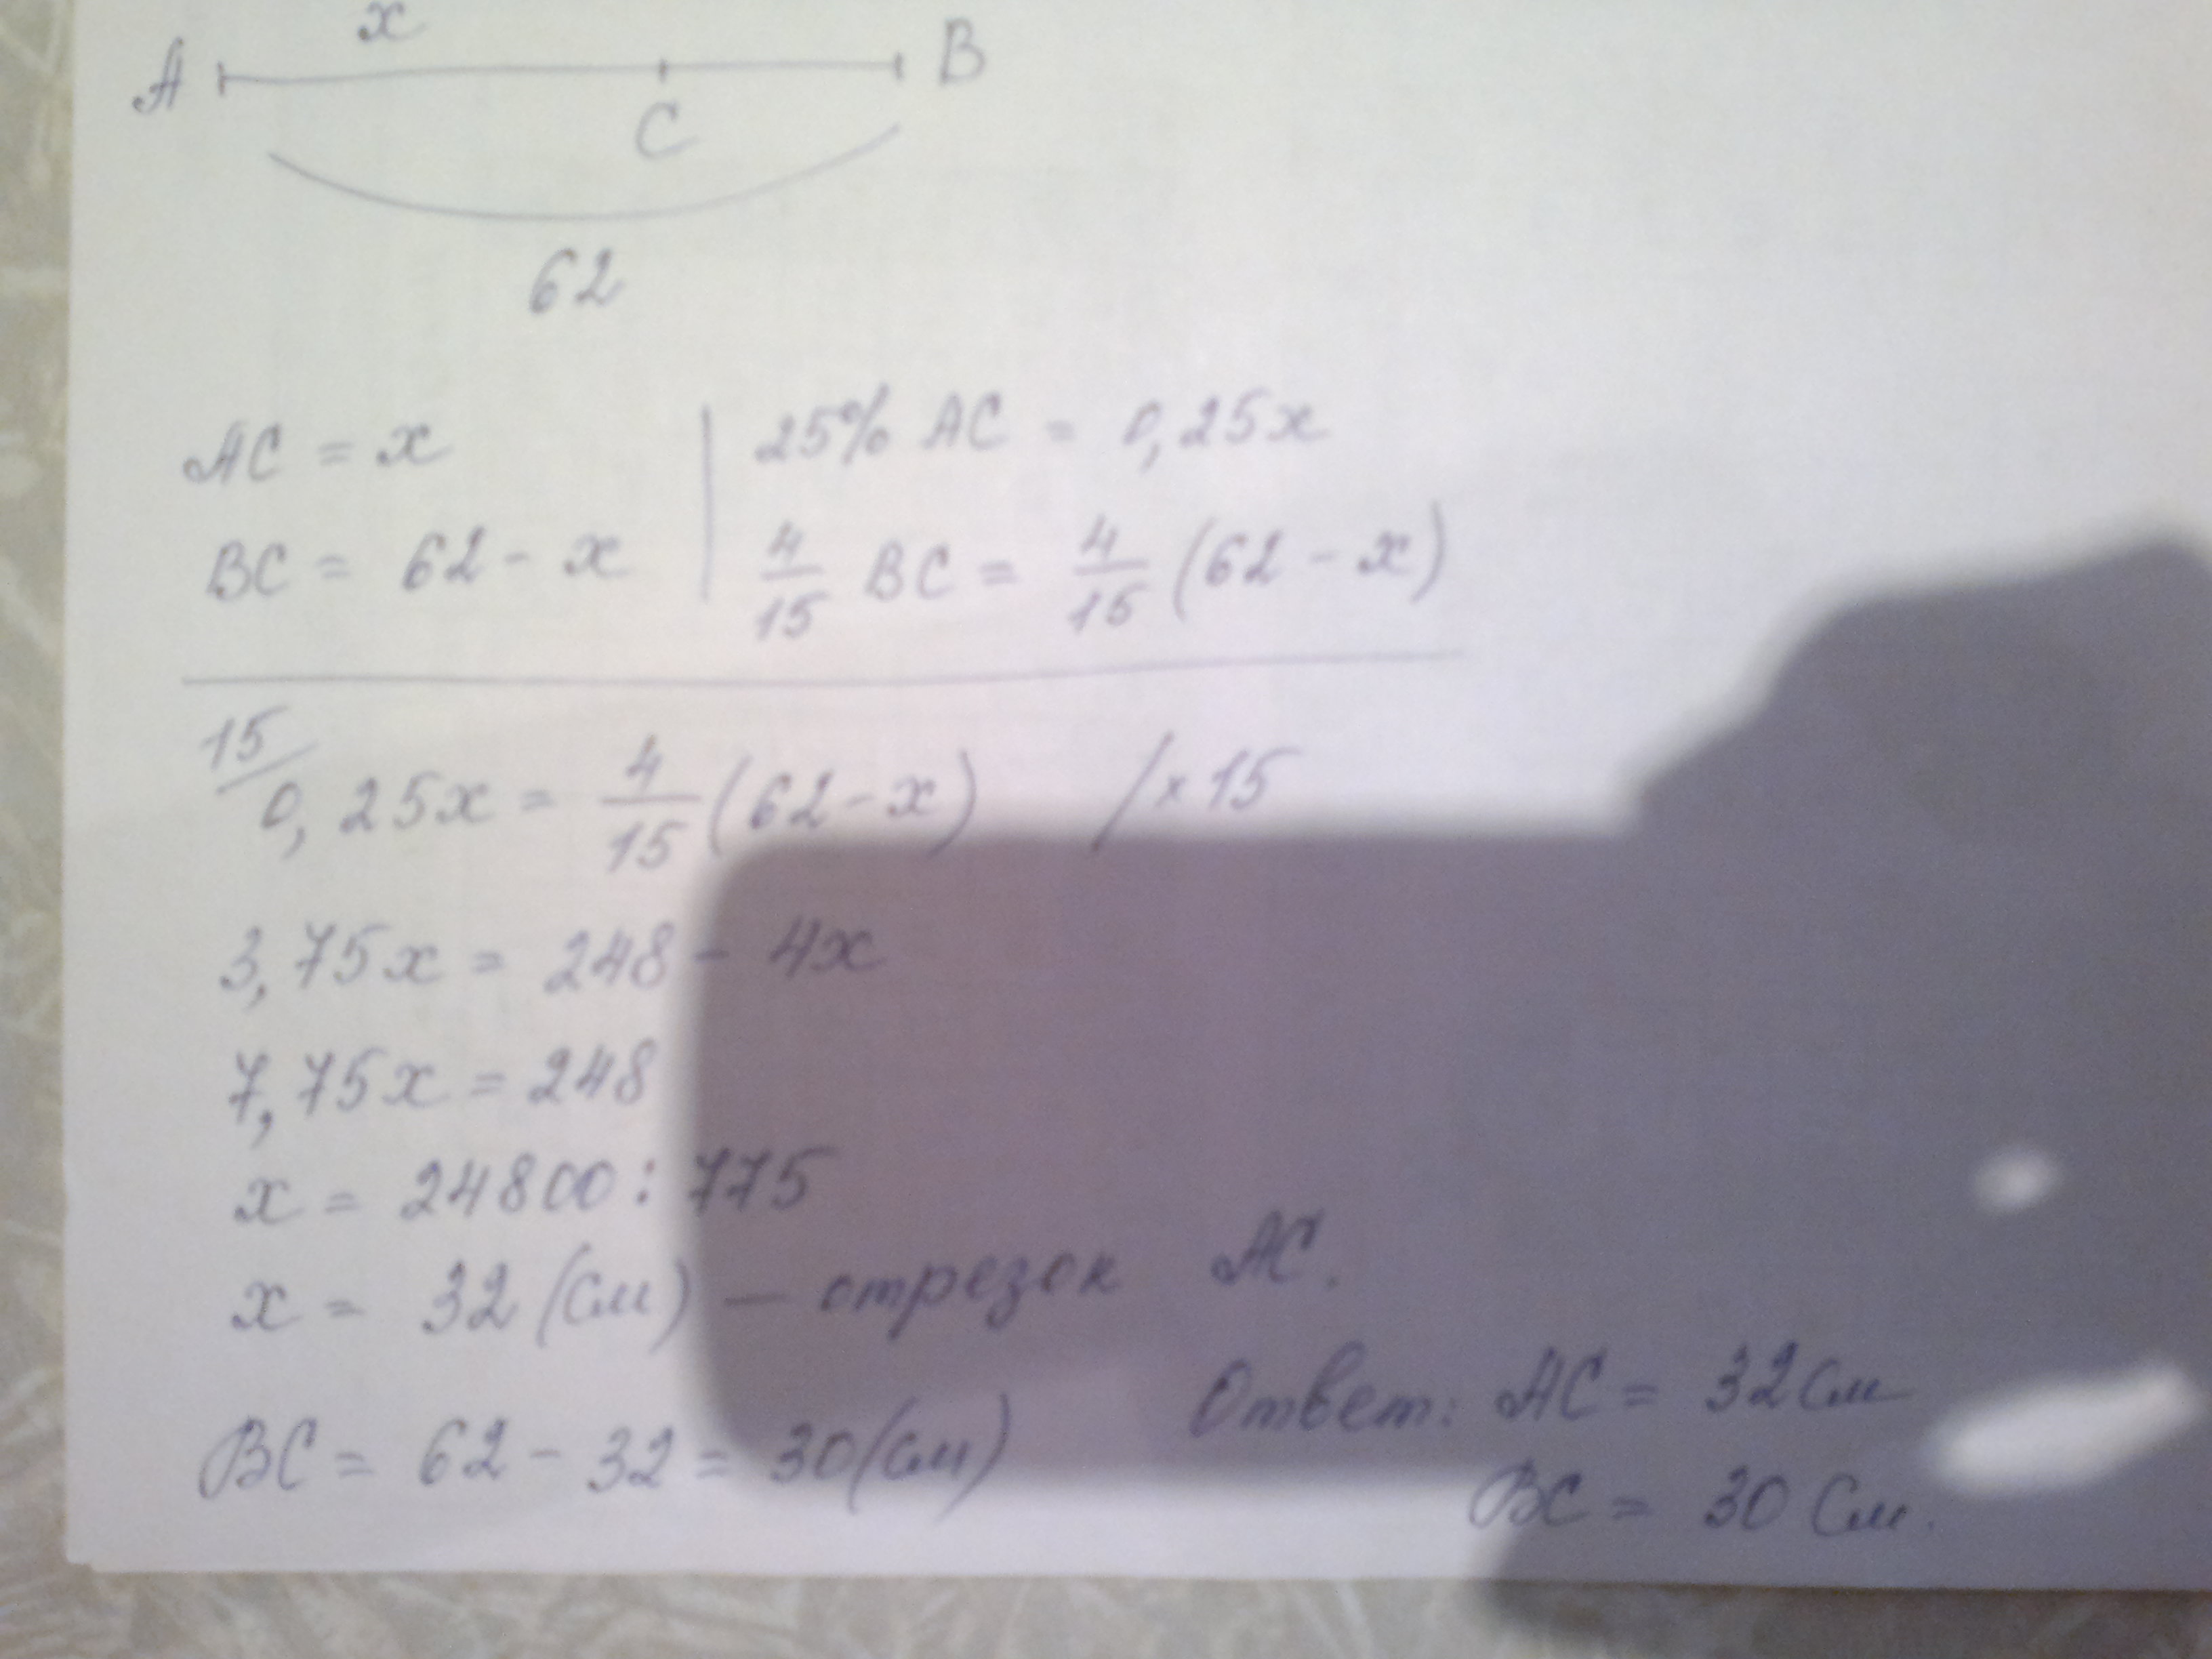 x
A B
C
62
AC = x | 25% AC = 0,25x
BC = 62 - x | 4/15 BC = 4/15 (62 - x)
15/ 0,25x = 4/15 (62 - x) / × 15
3,75x = 248 - 4x
7,75x = 248
x = 24800 : 775
x = 32 (см) — отрезок AC.
BC = 62 - 32 = 30 (см)
Ответ: AC = 32 см
BC = 30 см.